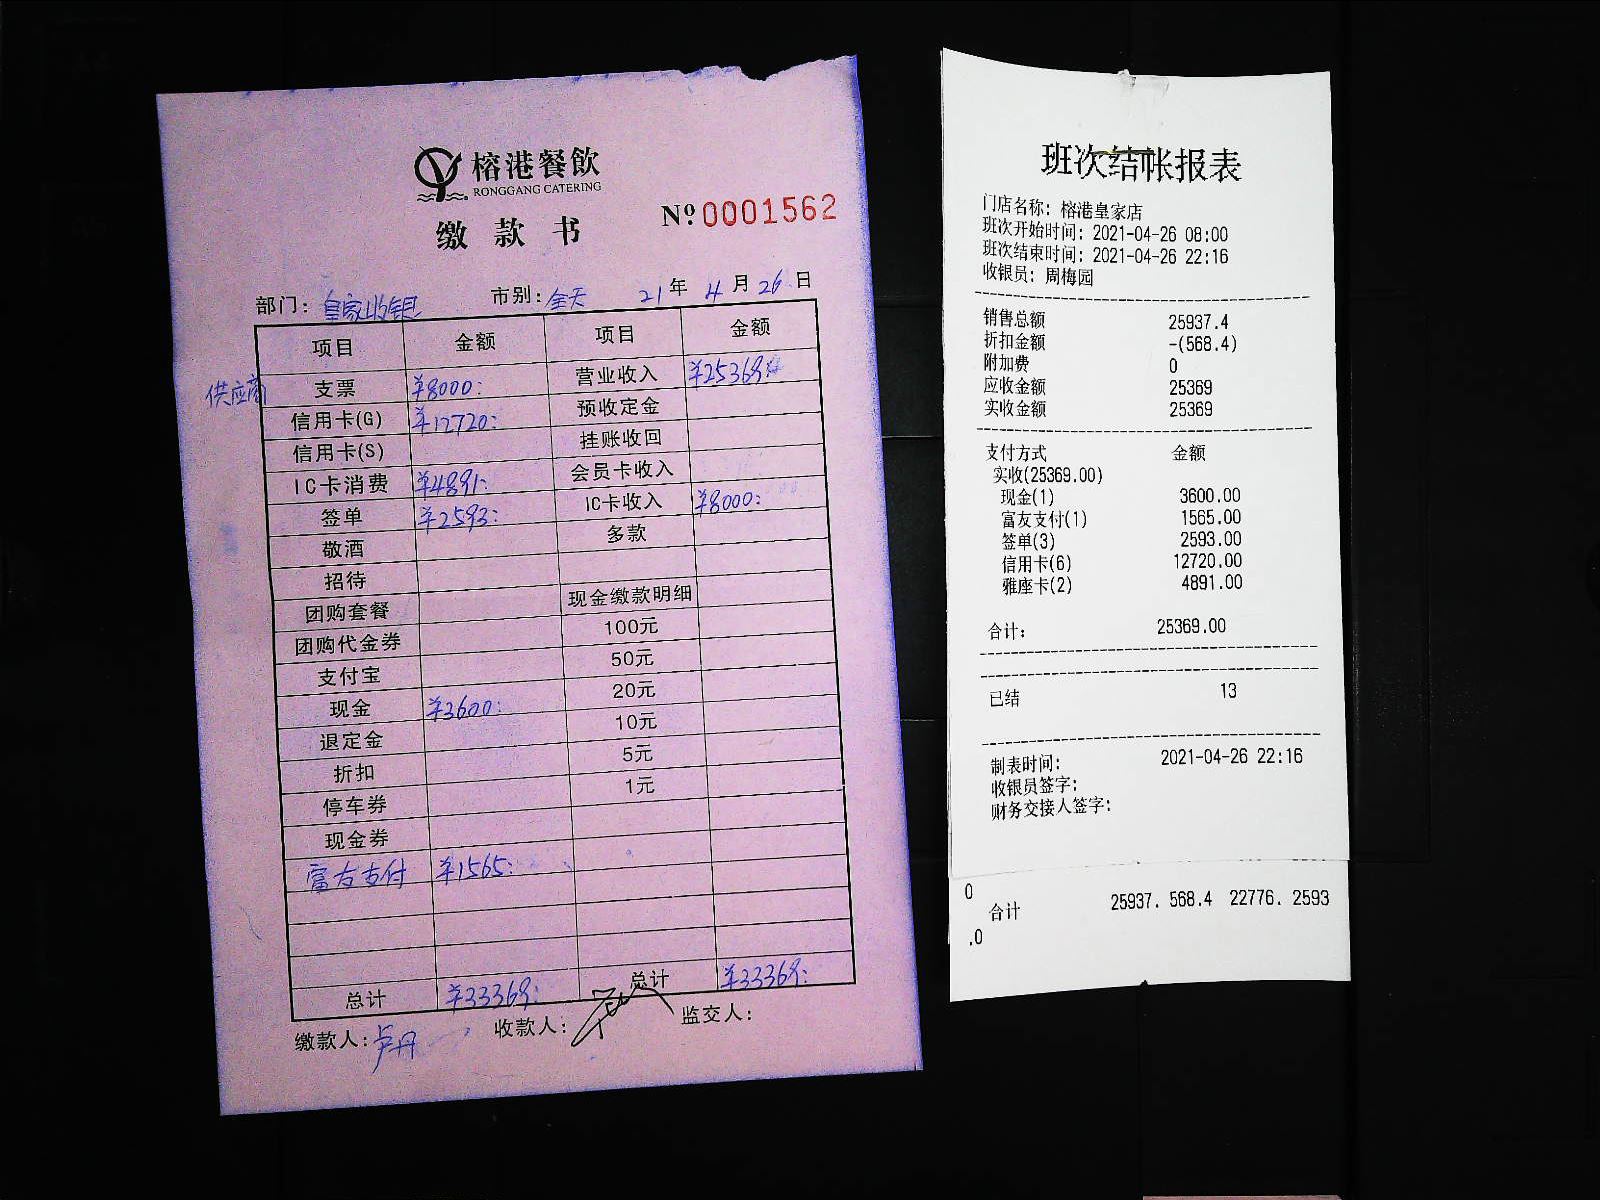 榕港餐飲
RONGGANG CATERING
缴款书
№ 0001562
部门: 皇家收银 市别: 全天 21年 4月 26日
项目 金额 项目 金额
供应商 支票 ¥8000: 营业收入 ¥25369:
信用卡(G) ¥12720: 预收定金
信用卡(S) 挂账收回
IC卡消费 ¥4891: 会员卡收入
签单 ¥2593: IC卡收入 ¥8000:
敬酒 多款
招待
团购套餐 现金缴款明细
团购代金券 100元
支付宝 50元
现金 ¥3600: 20元
退定金 10元
折扣 5元
停车券 1元
现金券
富友支付 ¥1565:
总计 ¥33369: 总计 ¥33369:
缴款人: 卢丹 收款人: 监交人:
班次结帐报表
门店名称: 榕港皇家店
班次开始时间: 2021-04-26 08:00
班次结束时间: 2021-04-26 22:16
收银员: 周梅园
销售总额 25937.4
折扣金额 -(568.4)
附加费 0
应收金额 25369
实收金额 25369
支付方式 金额
实收(25369.00)
现金(1) 3600.00
富友支付(1) 1565.00
签单(3) 2593.00
信用卡(6) 12720.00
雅座卡(2) 4891.00
合计: 25369.00
已结 13
制表时间: 2021-04-26 22:16
收银员签字:
财务交接人签字:
0
合计 25937. 568.4 22776. 2593
.0